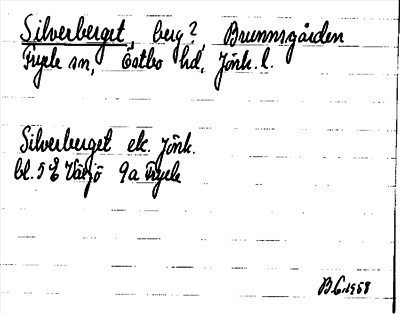 Silverberget, berg?, Brunnsgården
Fryele sn, Östbo hd, Jönk. l.
Silverberget ek. Jönk.
bl. 5 E Växjö 9a Fryele
B.C. 1958